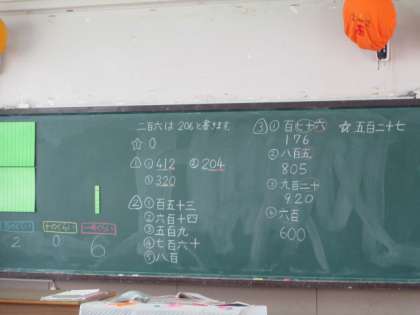 二百六は 206と書きます
☆ 0
△1 ① 412 ② 204
③ 320
△2 ① 百五十三
② 六百十四
③ 五百九
④ 七百六十
⑤ 八百
△3 ① 百七十六
176
② 八百五
805
③ 九百二十
920
④ 六百
600
☆ 五百二十七
百のくらい 十のくらい 一のくらい
2 0 6